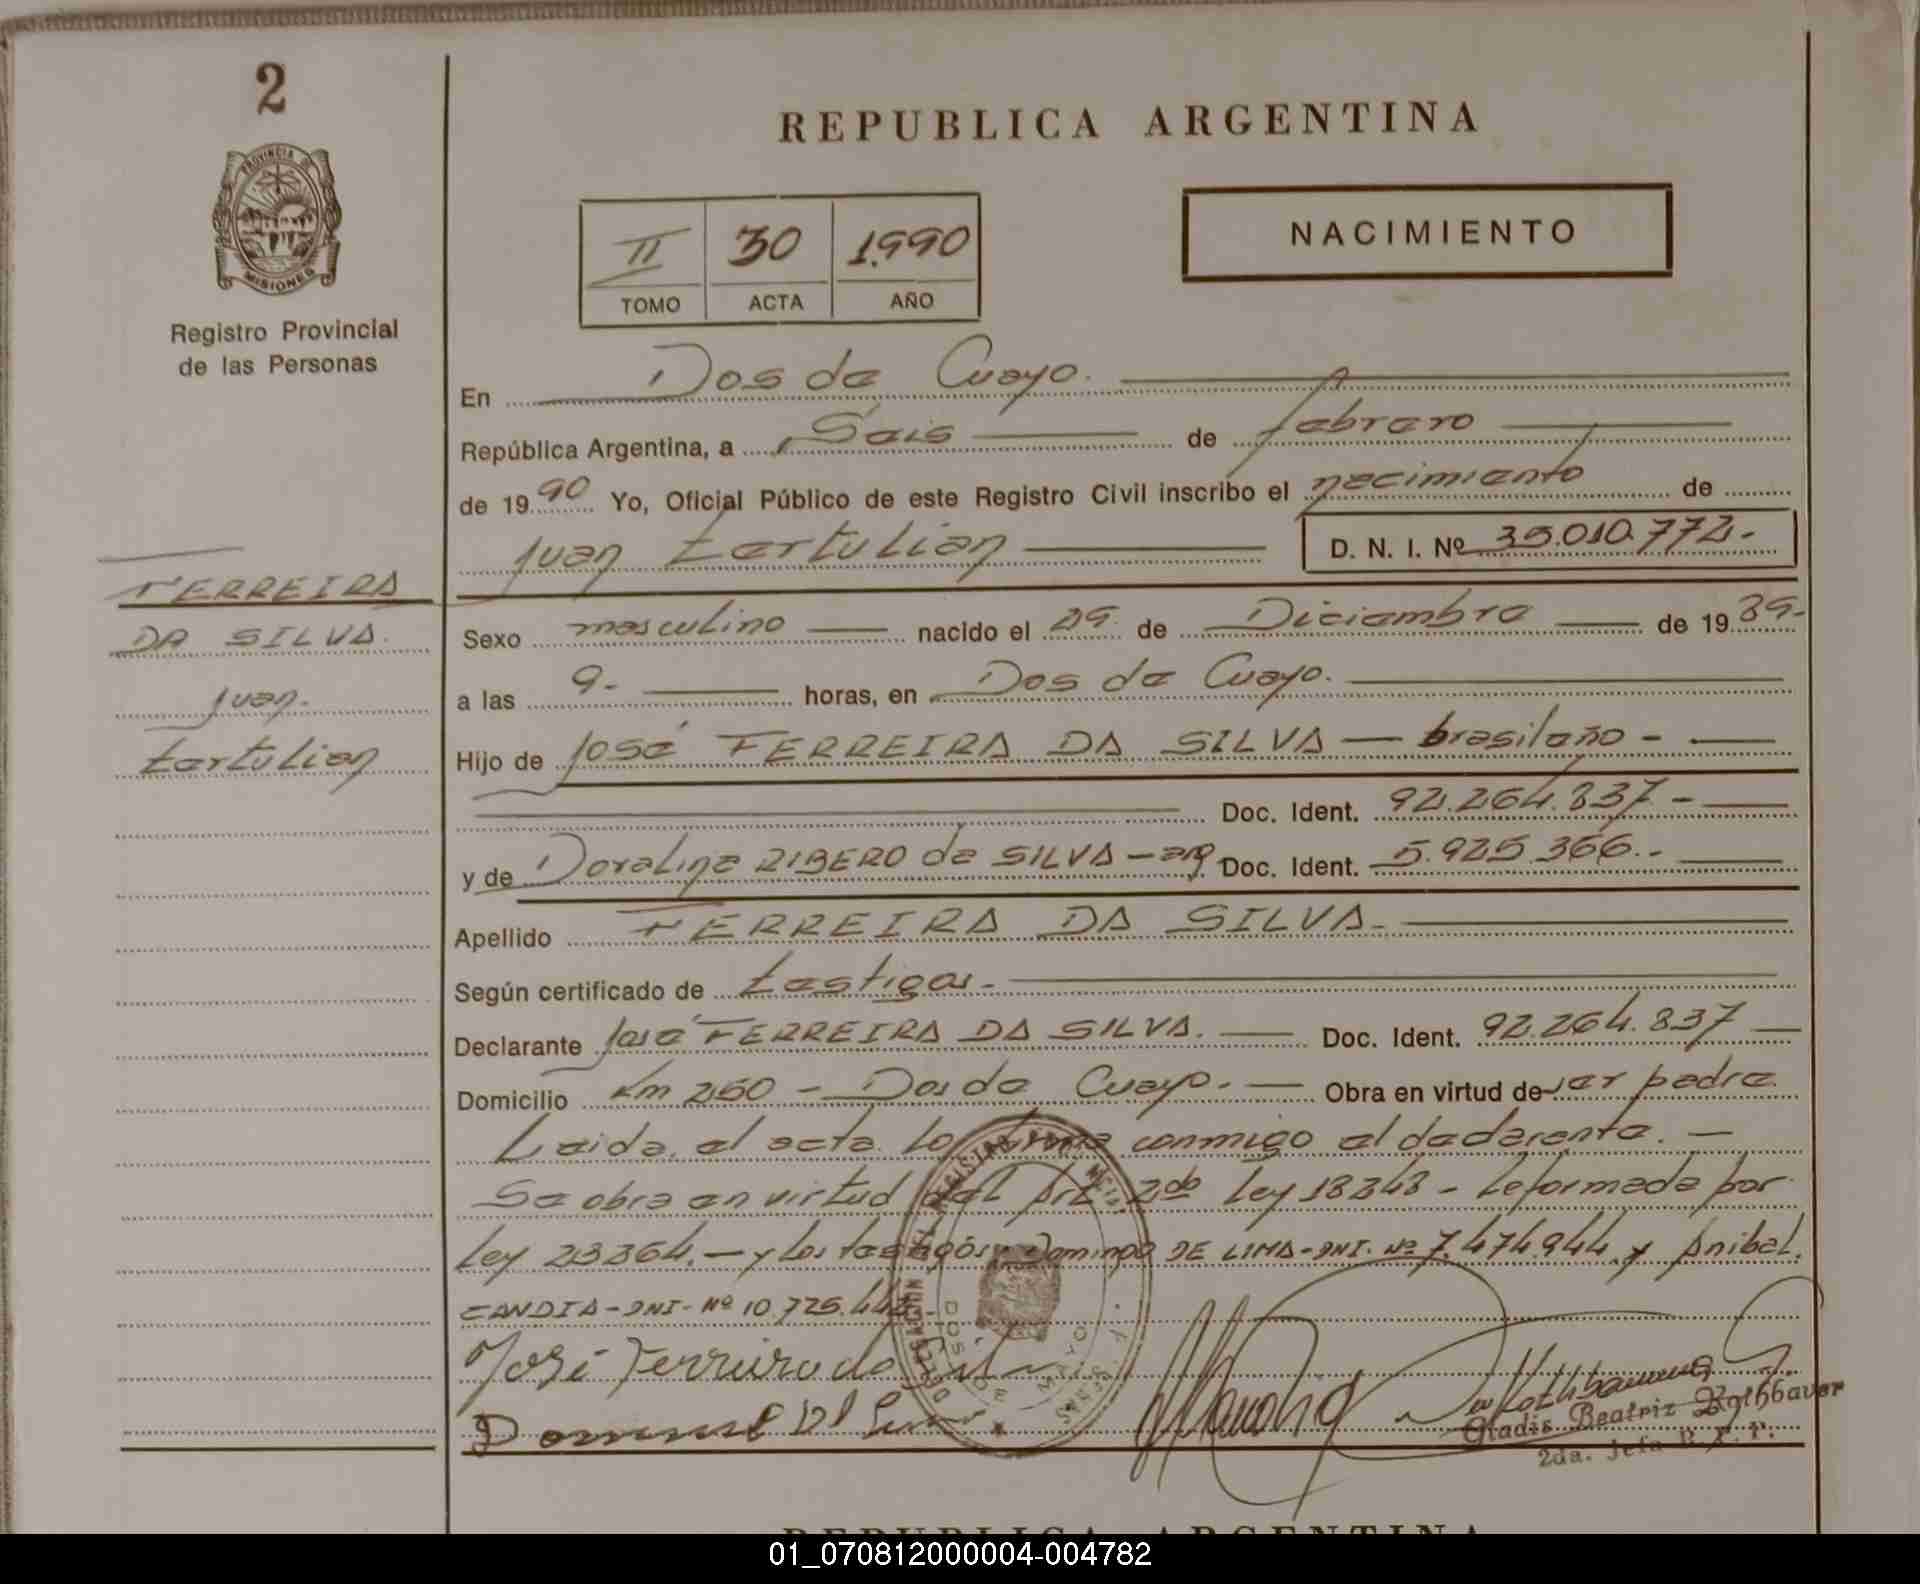 2
PROVINCIA DE
MISIONES
Registro Provincial
de las Personas
REPUBLICA ARGENTINA
II 30 1.990
TOMO ACTA AÑO
NACIMIENTO
En Dos de Mayo.
República Argentina, a Seis de febrero
de 1990 Yo, Oficial Público de este Registro Civil inscribo el nacimiento de
Juan Tertulian D. N. I. Nº 35.010.772.-
FERREIRA
DA SILVA.
Juan.
Tertulian
Sexo masculino nacido el 29 de Diciembre de 1989-
a las 9.- horas, en Dos de Mayo.
Hijo de José FERREIRA DA SILVA — brasileño -
Doc. Ident. 92.264.837-
y de Doralina RIBERO de SILVA - arg. Doc. Ident. 5.925.366.-
Apellido FERREIRA DA SILVA.-
Según certificado de testigos.-
Declarante José FERREIRA DA SILVA. Doc. Ident. 92.264.837
Domicilio Km 250 - Dos de Mayo.- Obra en virtud de ser padre
Leida el acta. La firma conmigo el
Se obra en virtud del Art 2do Ley 18248 - Reformada por
Ley 23364.- y los testigos Domingo DE LIMA - DNI. Nº 7.474.944 y Anibal.
CANDIA - DNI - Nº 10.725.
José Ferreira da Silva
DELEGACION DEL REGISTRO
DOS DE MAYO
Gladis Beatriz Rothbaver
2da. Jefa R. P. P.
REPUBLICA ARGENTINA
01_070812000004-004782